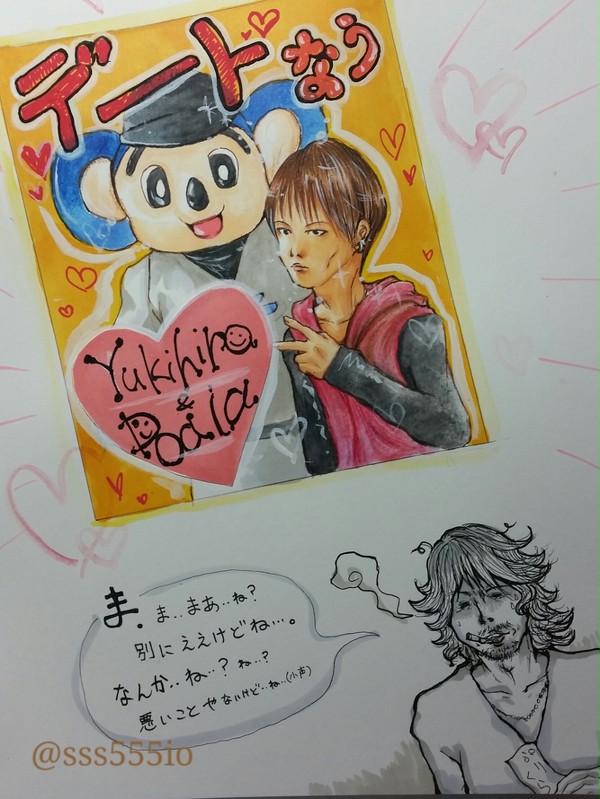 デートなう
Yukihiro
&
Doala
ま. ま‥まあ‥ね?
別にええけどね…。
なんか‥ね…? ね…?
悪いことやないけど‥ね‥(小声)
ぷりくら
@sss555io